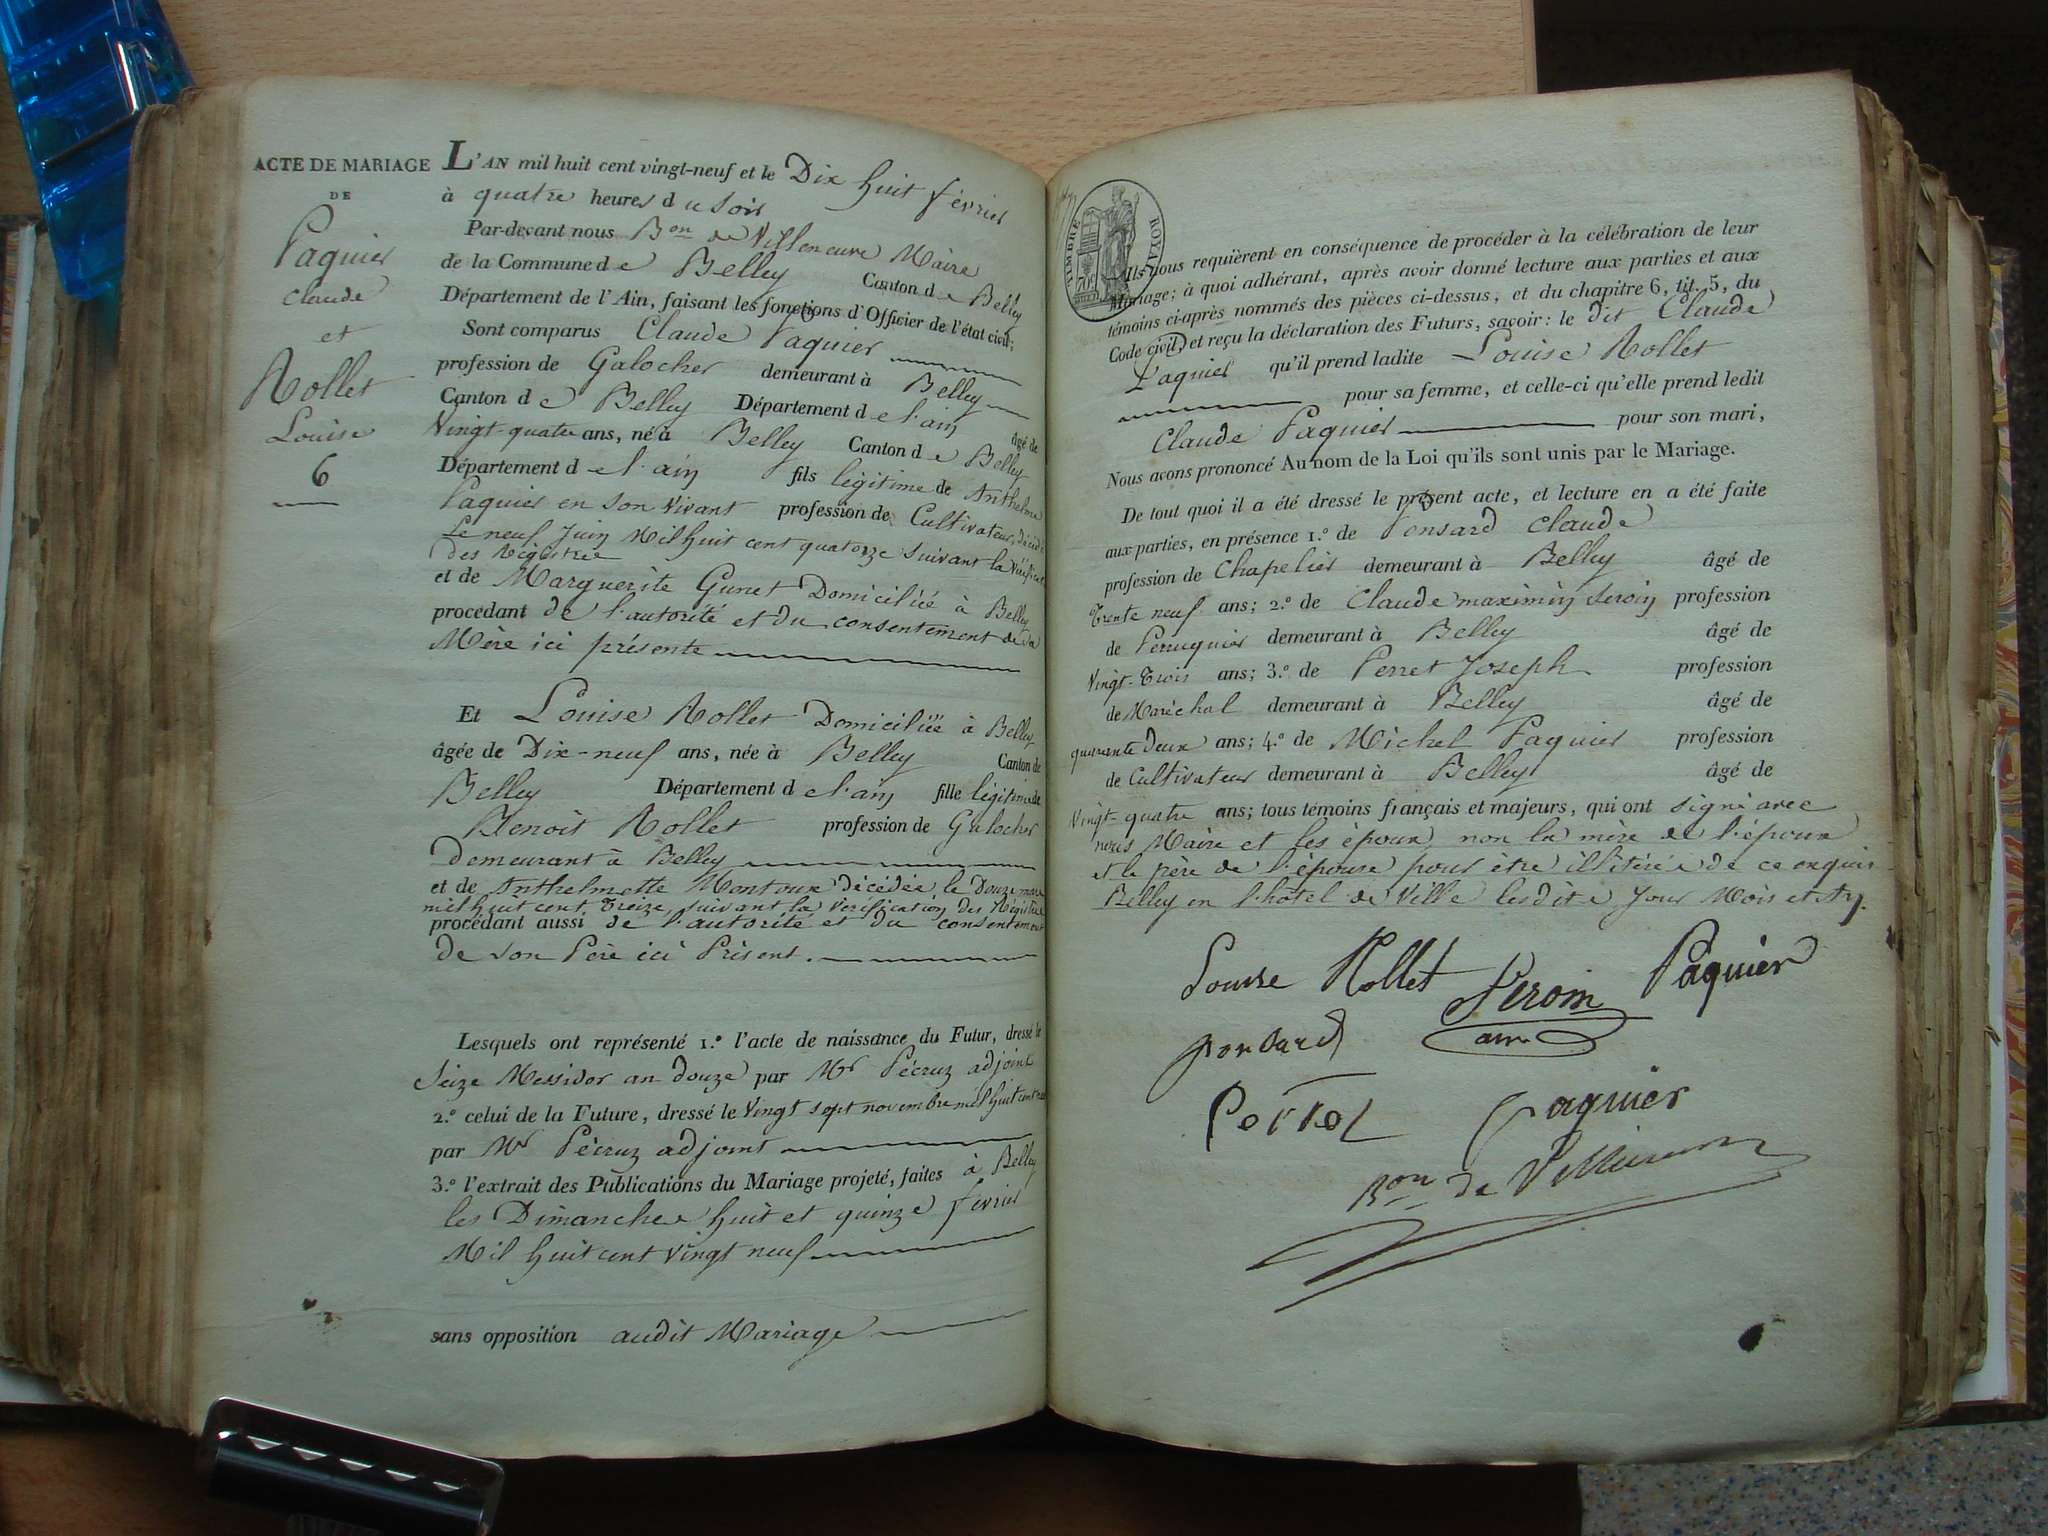 ACTE DE MARIAGE
DE
Paquier
Claude
et
Rollet
Louise
6
L'AN mil huit cent vingt-neuf et le Dix huit février
à quatre heures du soir
Par-devant nous Bon de Villeneuve Maire
de la Commune de Belley Canton de Belley
Département de l'Ain, faisant les fonctions d'Officier de l'état civil;
Sont comparus Claude Paquier
profession de Galocher demeurant à Belley
Canton de Belley Département de l'ain âgé de
Vingt-quatre ans, né à Belley Canton de Belley
Département de l'ain fils légitime de Anthelme
Paquier en son vivant profession de Cultivateur, décédé
Le neuf Juin Mil huit cent quatorze suivant la
des Régistre
et de Marguerite Domiciliée à Belley
procédant de l'autorité et du consentement de sa
Mère ici présente
Et Louise Rollet Domiciliée à Belley
âgée de Dix-neuf ans, née à Belley Canton de
Belley Département de l'ain fille légitime de
Benoit Rollet profession de Galocher
demeurant à Belley
et de Anthelmette Montoux décédée le Douze mars
mil huit cent treize, suivant la vérification des Régistre
procédant aussi de l'autorité et du consentement
de son Père ici Présent.
Lesquels ont représenté 1.º l'acte de naissance du Futur, dressé le
Seize Messidor an douze par Mr Pécruz adjoint
2.º celui de la Future, dressé le Vingt sept novembre mil huit cent
par Mr Pécruz adjoint
3.º l'extrait des Publications du Mariage projeté, faites à Belley
les Dimanches huit et quinze février
Mil huit cent vingt neuf
sans opposition audit Mariage
TIMBRE ROYAL
Ils nous requièrent en conséquence de procéder à la célébration de leur
Mariage; à quoi adhérant, après avoir donné lecture aux parties et aux
témoins ci-après nommés des pièces ci-dessus, et du chapitre 6, tit. 5, du
Code civil, et reçu la déclaration des Futurs, savoir: le dit Claude
Paquier qu'il prend ladite Louise Rollet
pour sa femme, et celle-ci qu'elle prend ledit
Claude Paquier pour son mari,
Nous avons prononcé Au nom de la Loi qu'ils sont unis par le Mariage.
De tout quoi il a été dressé le présent acte, et lecture en a été faite
aux parties, en présence 1.º de Ponsard Claude
profession de Chapelier demeurant à Belley âgé de
Trente neuf ans; 2.º de Claude maximin Seroin profession
de Perruquier demeurant à Belley âgé de
Vingt-Trois ans; 3.º de Perret Joseph profession
de Maréchal demeurant à Belley âgé de
quarante Deux ans; 4.º de Michel Paquier profession
de Cultivateur demeurant à Belley âgé de
Vingt-quatre ans; tous témoins français et majeurs, qui ont signé avec
nous Maire et les époux, non la mère de l'époux
et le père de l'épouse pour être illitérés de ce enquis
Belley en l'hôtel de Ville lesdits Jour Mois et An.
Louise Rollet Seroin Paquier
ponsard
Perret Paquier
Bon de Villeneuve